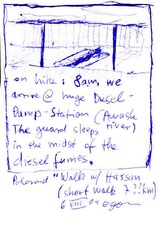 on hike: 8am we
arrive @ huge Diesel-
Pump-Station (Awash
The guard sleeps river)
in the midst of the
diesel fumes.
"Walk w/ Hassan
(short walk 7 ??km)
6 VIII